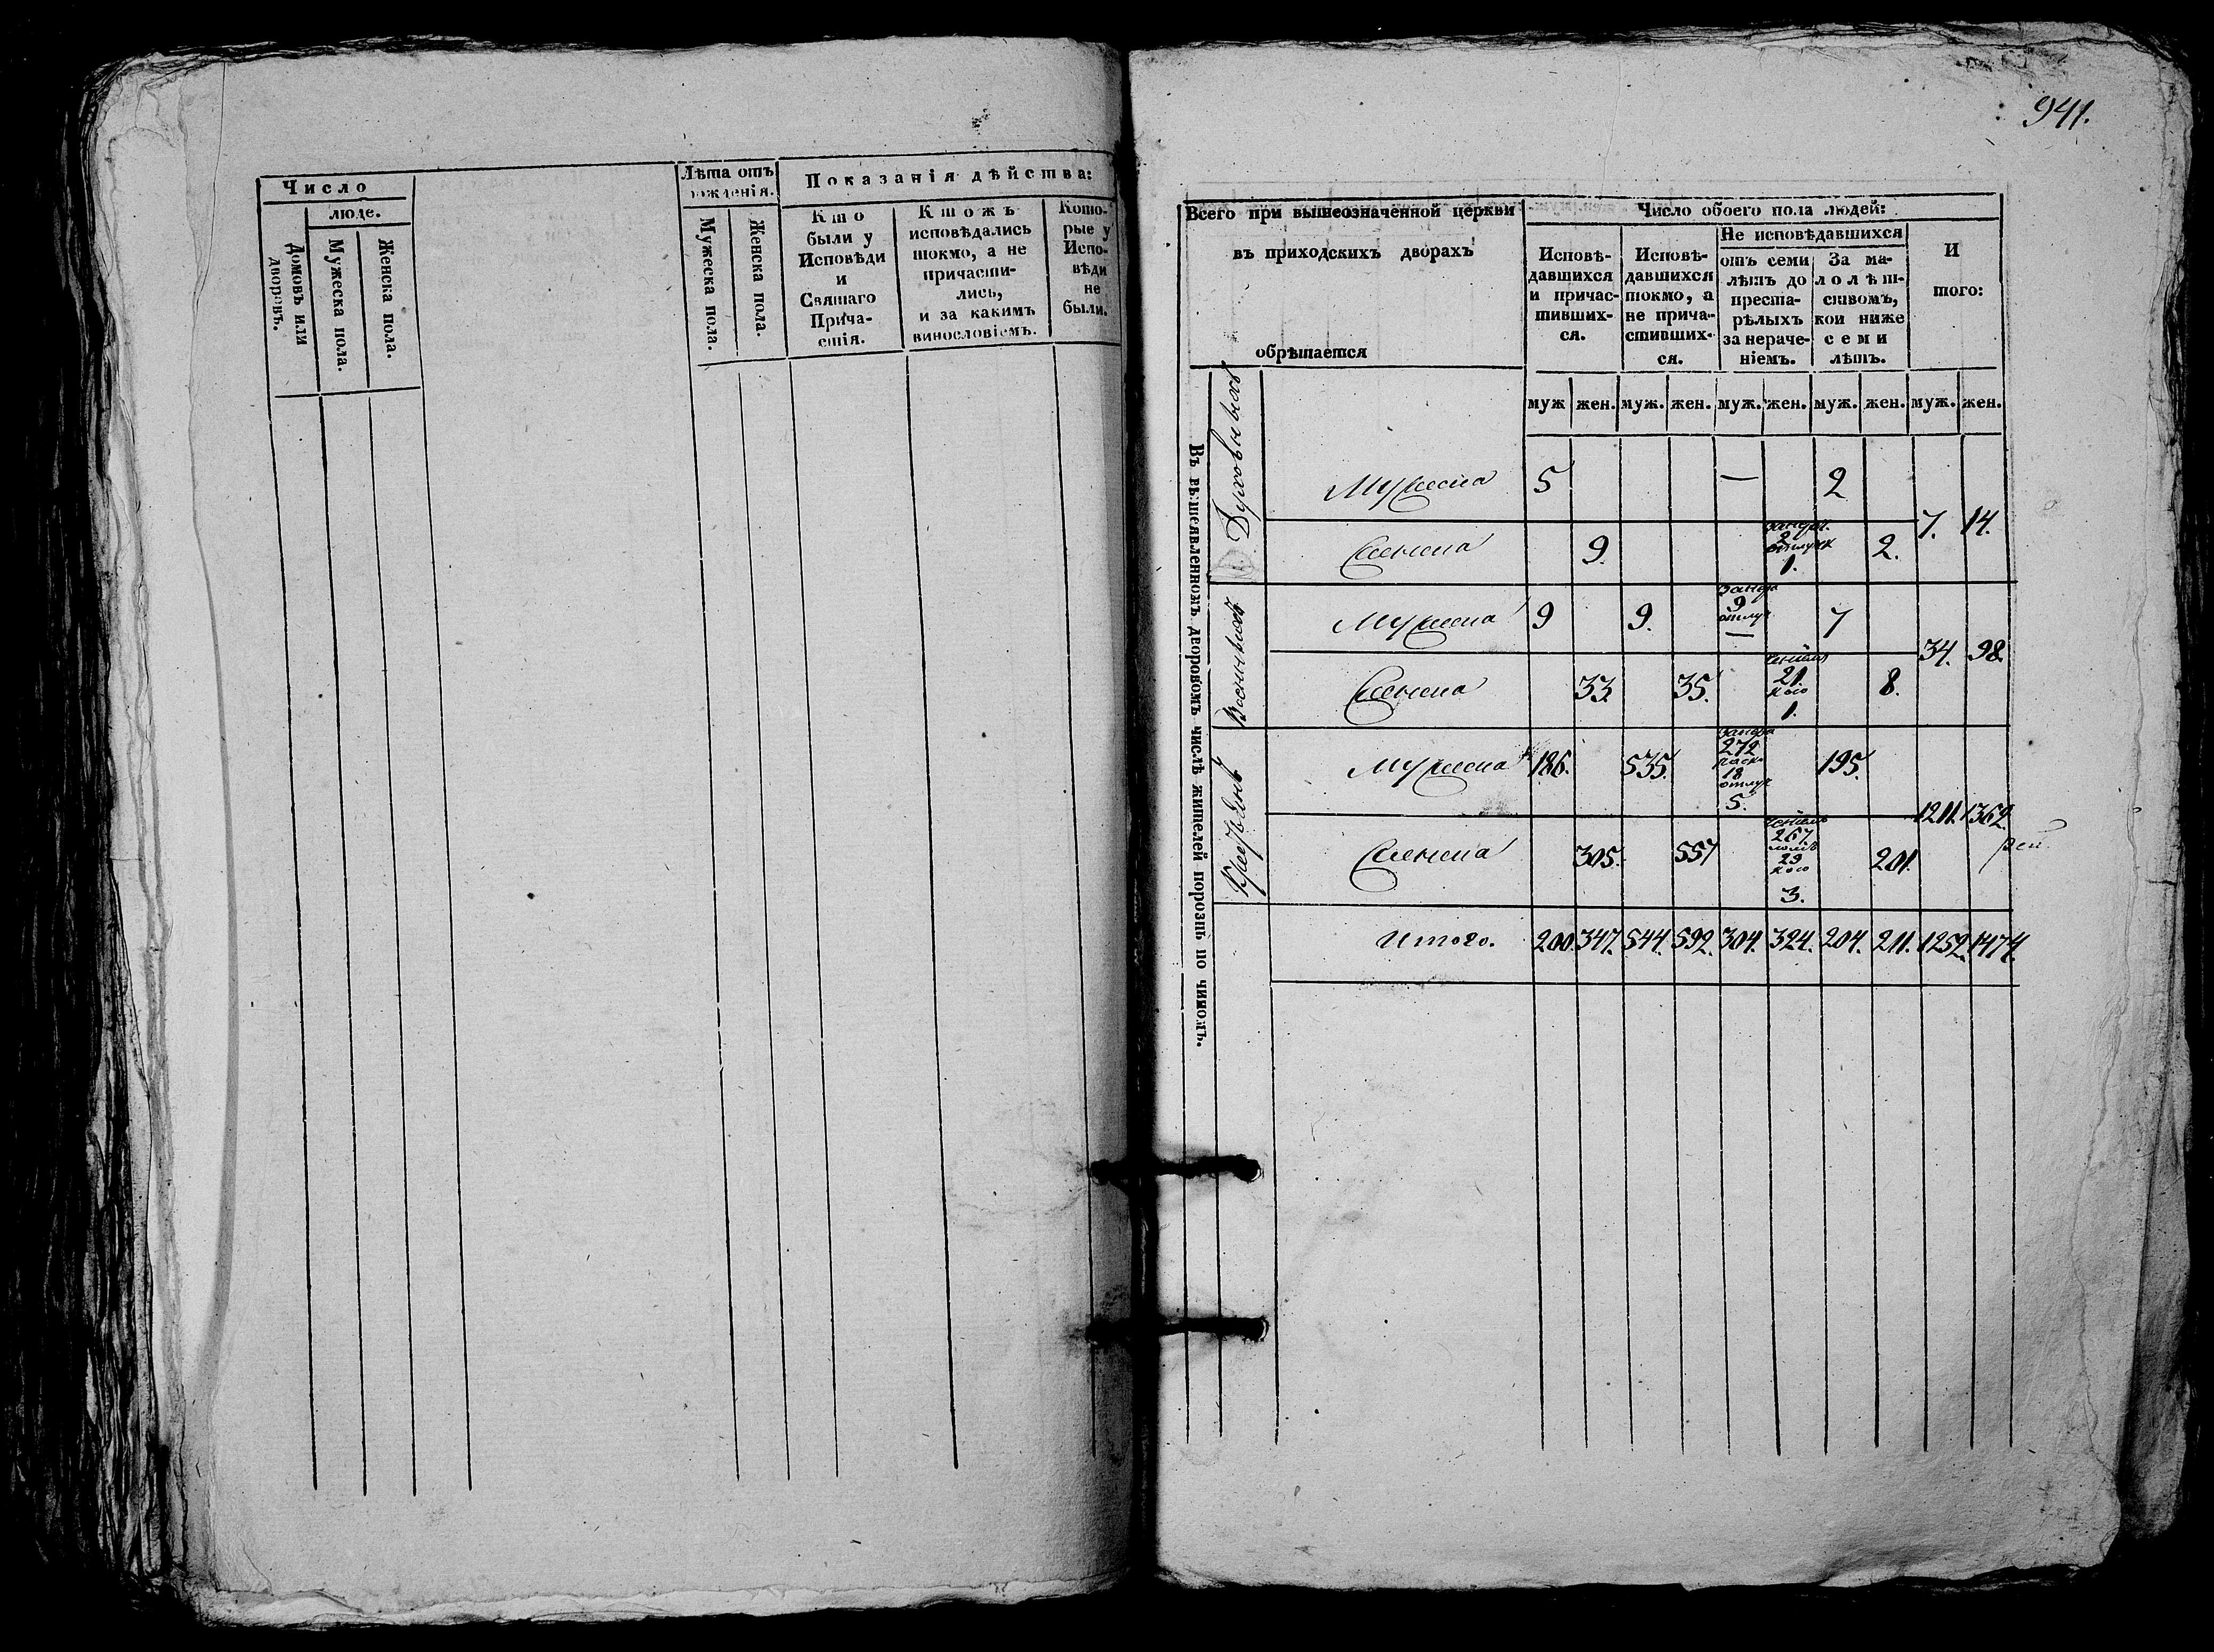 Число
люде.
Домовъ или дворовъ.
Мужеска пола.
Женска пола.
Лѣта отъ
рожденія.
Мужеска пола.
Женска пола.
Показанія дѣйства:
Кто
были у
Исповѣди
и
Святаго
Прича-
стія.
Ктожъ
исповѣдались
токмо, а не
причасти-
лись,
и за какимъ
винословіемъ.
Кото-
рые у
Испо-
вѣди
не
были.
941.
Всего при вышеозначенной церкви
въ приходскихъ дворахъ
обрѣтается
Число обоего пола людей:
Исповѣ-
давшихся
и причас-
тивших-
ся.
Исповѣ-
давшихся
токмо, а
не прича-
стивших-
ся.
Не исповѣдавшихся
отъ семи
лѣтъ до
преста-
рѣлыхъ
за нераче-
ніемъ.
За ма-
лолѣт-
ствомъ,
кои ниже
семи
лѣтъ.
И
того:
муж жен. муж. жен. муж. жен. муж. жен. муж. жен.
Въ вышеявленномъ дворовомъ числѣ жителей порознь по чиномъ.
Духовныхъ
Мужеска 5 — 2
7. 14.
Женска 9. 2 1. 2.
Военныхъ
Мужеска 9 9. 9 — 7
34. 98.
Женска 33. 35. 21. 1. 8.
Крестьянъ
Мужеска 186. 535. 272 18 5. 195.
1211. 1362.
Женска 305. 557 267 29 3. 201.
Итого. 200. 347. 544. 592. 304. 324. 204. 211. 1252. 1474.